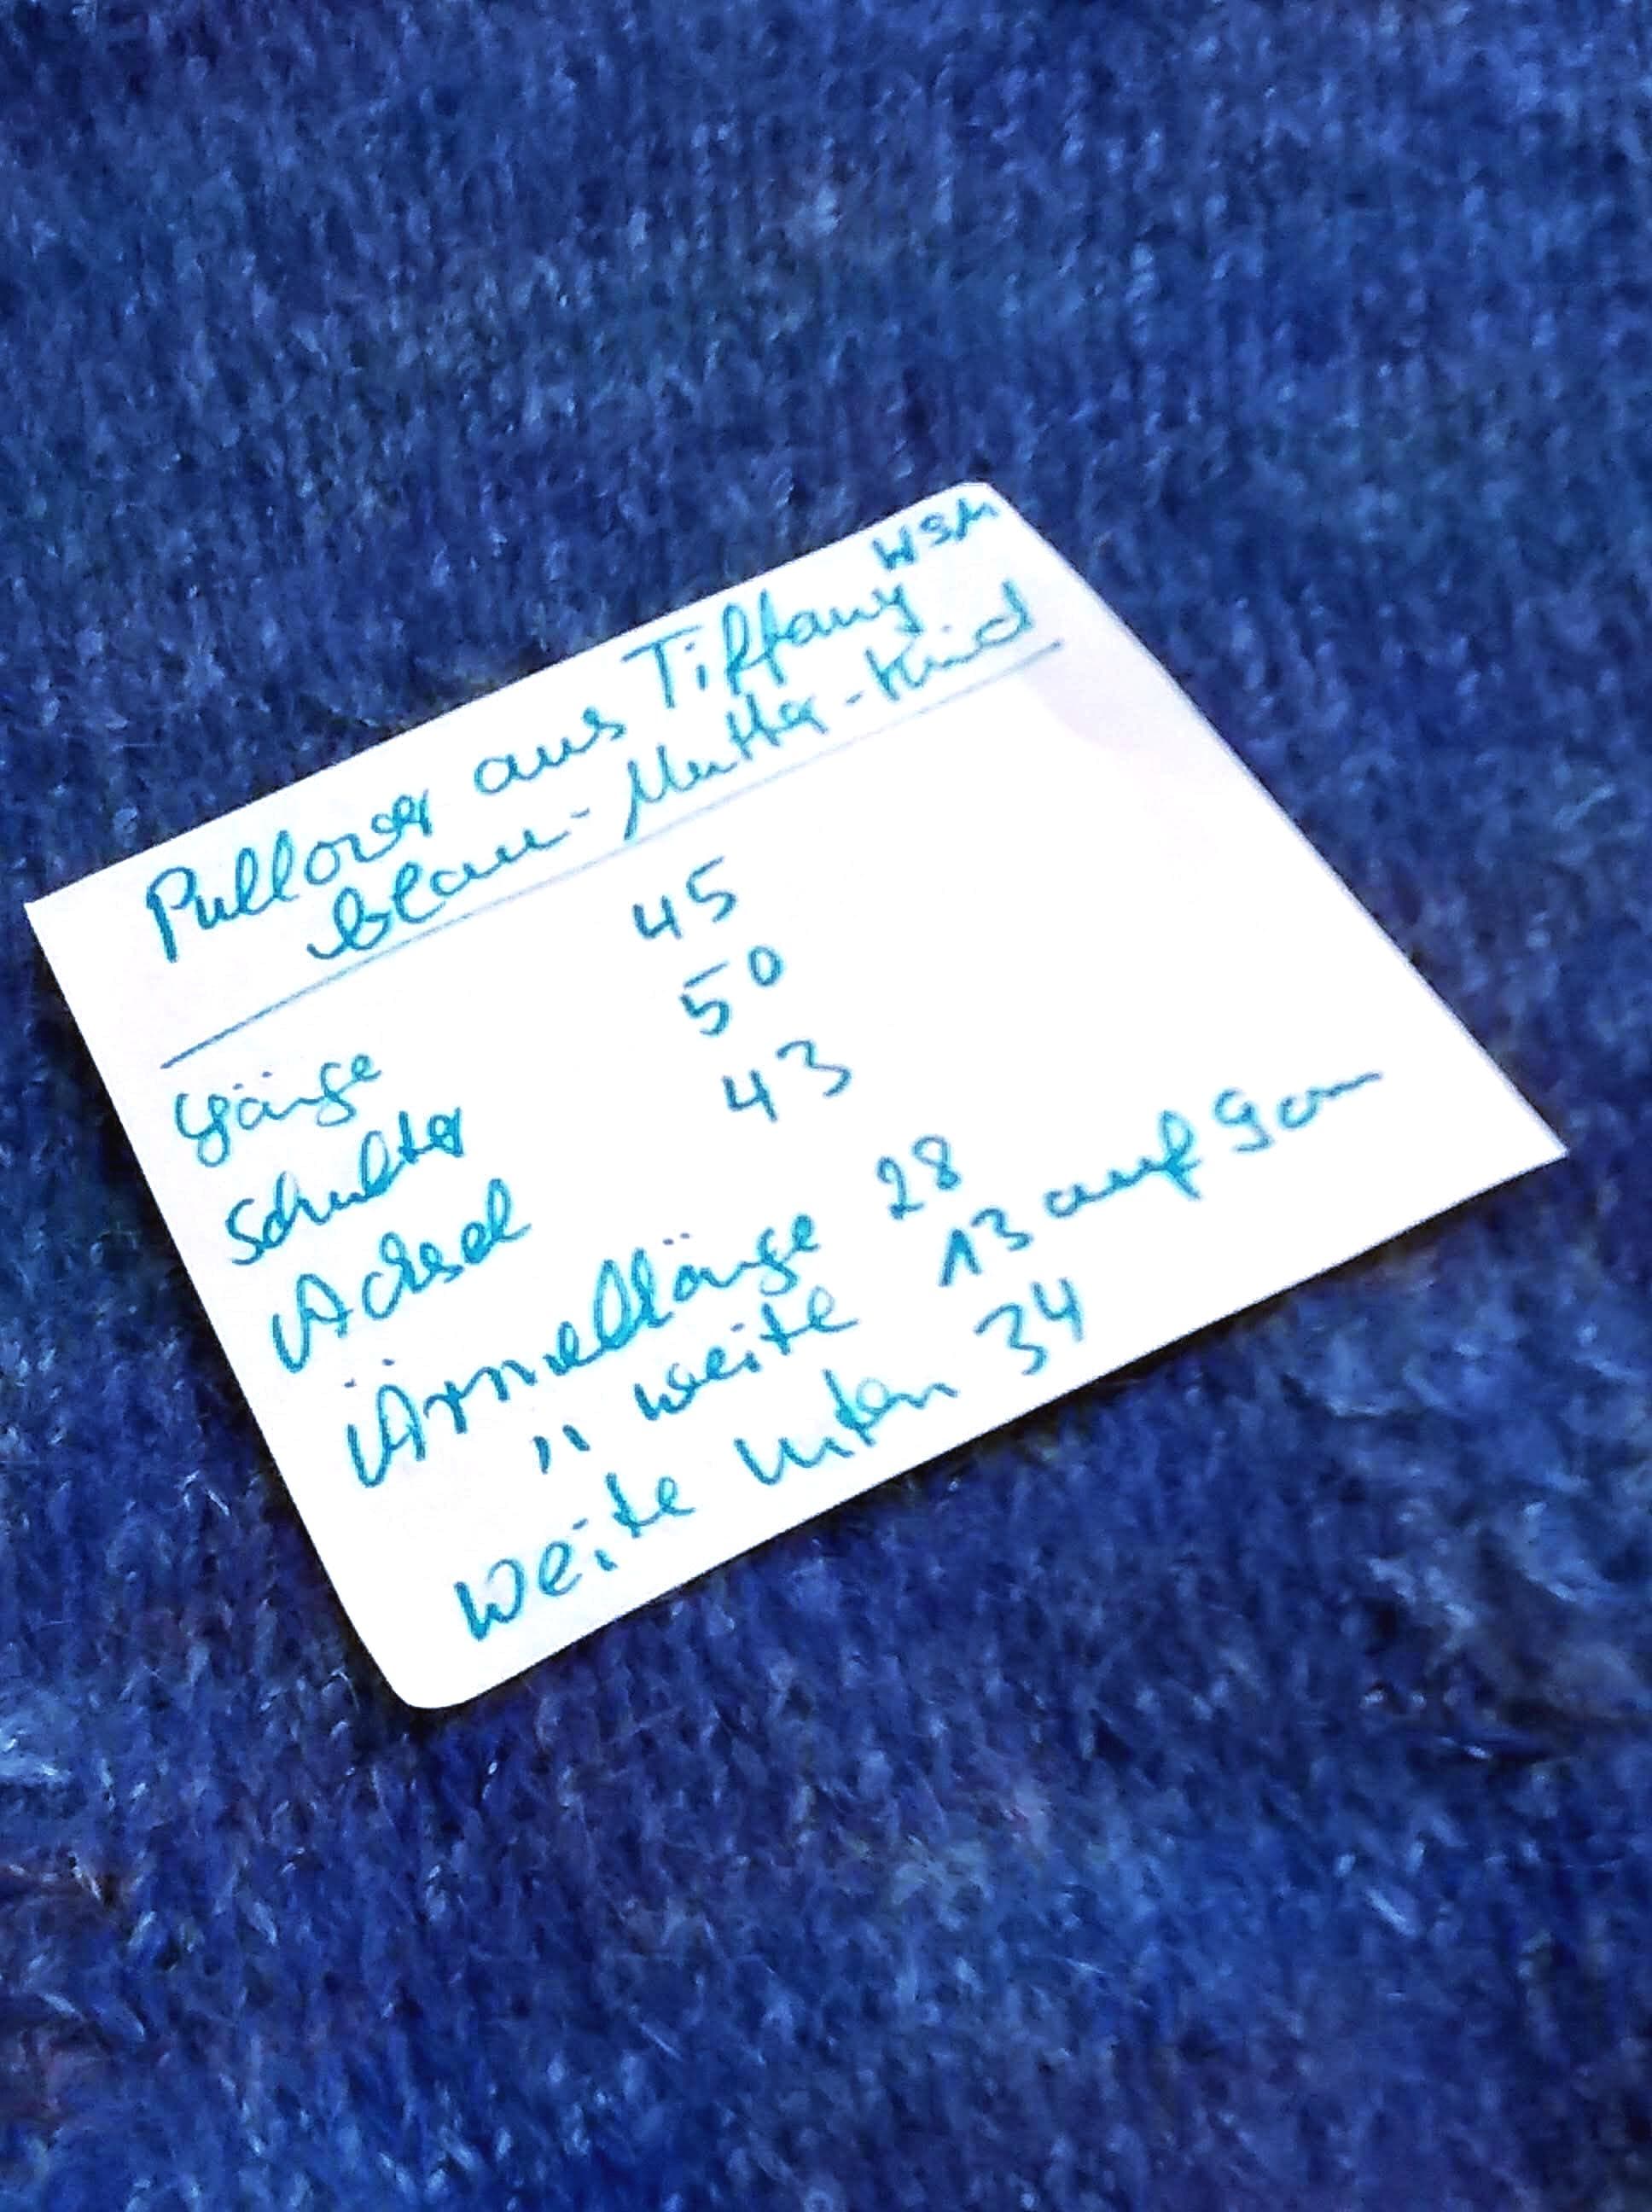 WSM
Pullover aus Tiffany
blau-Mutter-Kind
Länge 45
Schulter 50
Achsel 43
Ärmellänge 28
" weite 13 auf 9cm
Weite unten 34